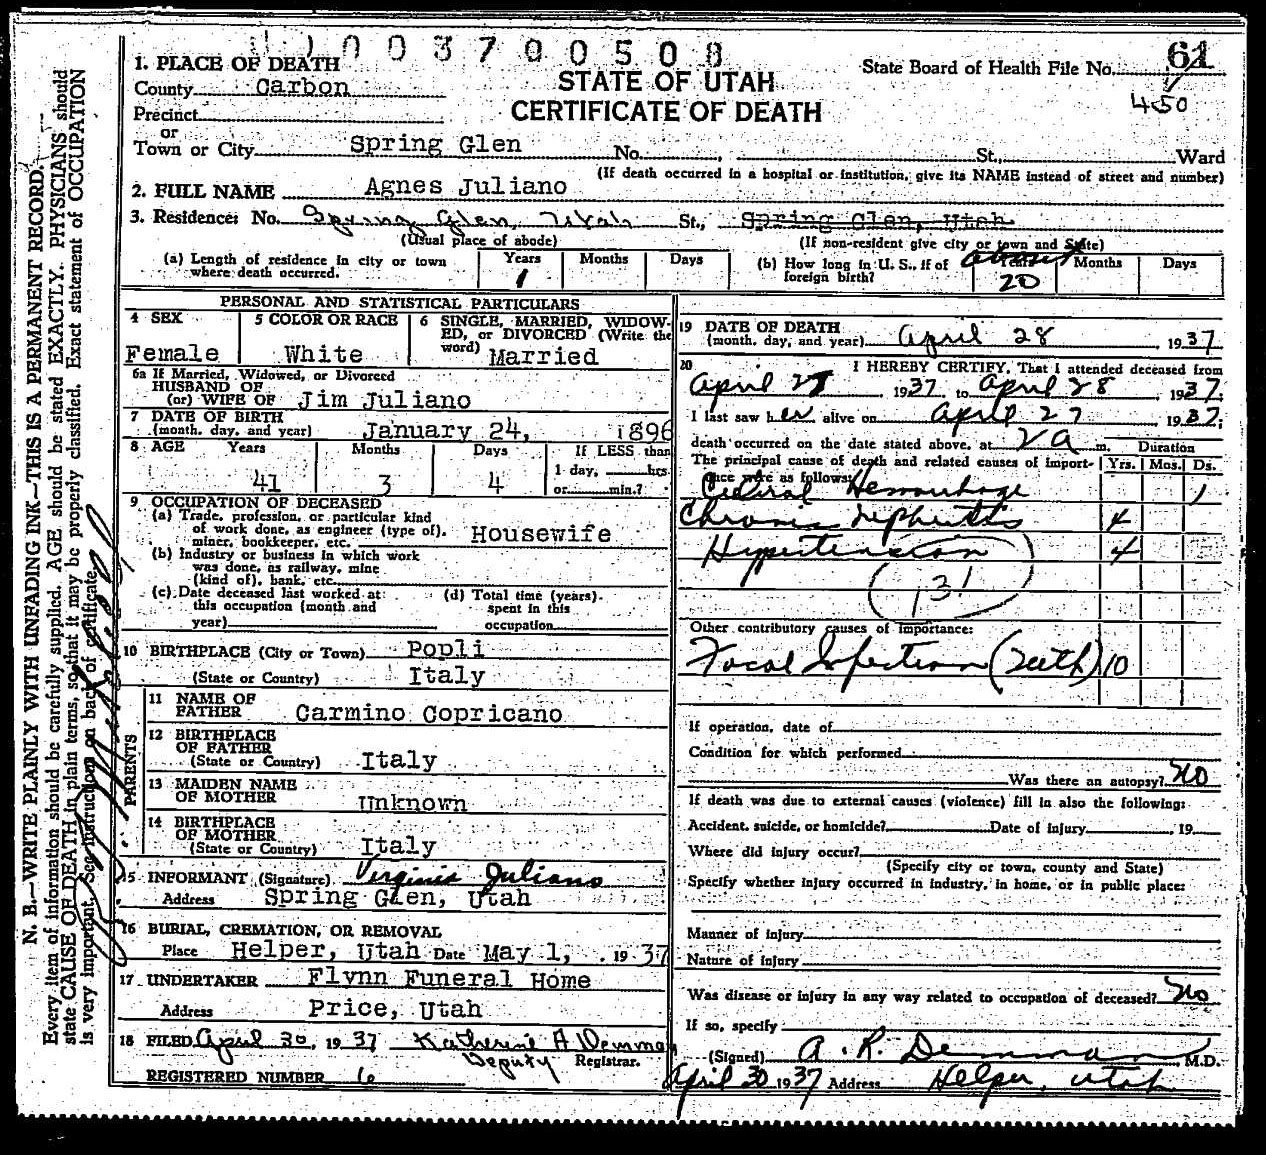 1003700508
61
State Board of Health File No.
450
STATE OF UTAH
CERTIFICATE OF DEATH
1. PLACE OF DEATH
County Carbon
Precinct
or
Town or City Spring Glen No. , St., Ward
(If death occurred in a hospital or institution, give its NAME instead of street and number)
2. FULL NAME Agnes Juliano
3. Residence: No. Spring Glen, Utah St., Spring Glen, Utah
(Usual place of abode) (If non-resident give city or town and State)
(a) Length of residence in city or town where death occurred. Years 1 Months Days
(b) How long in U. S., if of foreign birth? about Years 20 Months Days
PERSONAL AND STATISTICAL PARTICULARS
4 SEX Female
5 COLOR OR RACE White
6 SINGLE, MARRIED, WIDOWED, or DIVORCED (Write the word) Married
6a If Married, Widowed, or Divorced
HUSBAND OF
(or) WIFE OF Jim Juliano
7 DATE OF BIRTH
(month, day, and year) January 24, 1896
8 AGE Years 41 Months 3 Days 4 If LESS than 1 day, hrs. or min.?
9 OCCUPATION OF DECEASED
(a) Trade, profession, or particular kind
of work done, as engineer (type of),
miner, bookkeeper, etc. Housewife
(b) Industry or business in which work
was done, as railway, mine
(kind of), bank, etc.
(c) Date deceased last worked at
this occupation (month and
year)
(d) Total time (years)
spent in this
occupation
10 BIRTHPLACE (City or Town) Popli
(State or Country) Italy
PARENTS
11 NAME OF
FATHER Carmino Copricano
12 BIRTHPLACE
OF FATHER
(State or Country) Italy
13 MAIDEN NAME
OF MOTHER Unknown
14 BIRTHPLACE
OF MOTHER
(State or Country) Italy
15 INFORMANT (Signature) Virginia Juliano
Address Spring Glen, Utah
16 BURIAL, CREMATION, OR REMOVAL
Place Helper, Utah Date May 1, 1937
17 UNDERTAKER Flynn Funeral Home
Address Price, Utah
18 FILED April 30, 1937 Katherine A Demman
Deputy Registrar.
REGISTERED NUMBER 6
19 DATE OF DEATH
(month, day, and year) April 28, 1937
20 I HEREBY CERTIFY, That I attended deceased from
April 27 1937 to April 28, 1937.
I last saw her alive on April 27, 1937;
death occurred on the date stated above, at 2 a m. Duration
The principal cause of death and related causes of importance were as follows: Yrs. Mos. Ds.
Cerebral Hemorrhage 1
Chronic nephritis 4
Hypertension 4
131
Other contributory causes of importance:
Focal Infection (Teeth) 10
If operation, date of
Condition for which performed
Was there an autopsy? No
If death was due to external causes (violence) fill in also the following:
Accident, suicide, or homicide? Date of injury , 19
Where did injury occur?
(Specify city or town, county and State)
Specify whether injury occurred in industry, in home, or in public place:
Manner of injury
Nature of injury
Was disease or injury in any way related to occupation of deceased? No
If so, specify
(Signed) A. R. Demman M.D.
April 30 1937 Address Helper, Utah
N. B.—WRITE PLAINLY WITH UNFADING INK—THIS IS A PERMANENT RECORD.
Every item of information should be carefully supplied. AGE should be stated EXACTLY. PHYSICIANS should
state CAUSE OF DEATH in plain terms, so that it may be properly classified. Exact statement of OCCUPATION
is very important. See instructions on back of certificate.